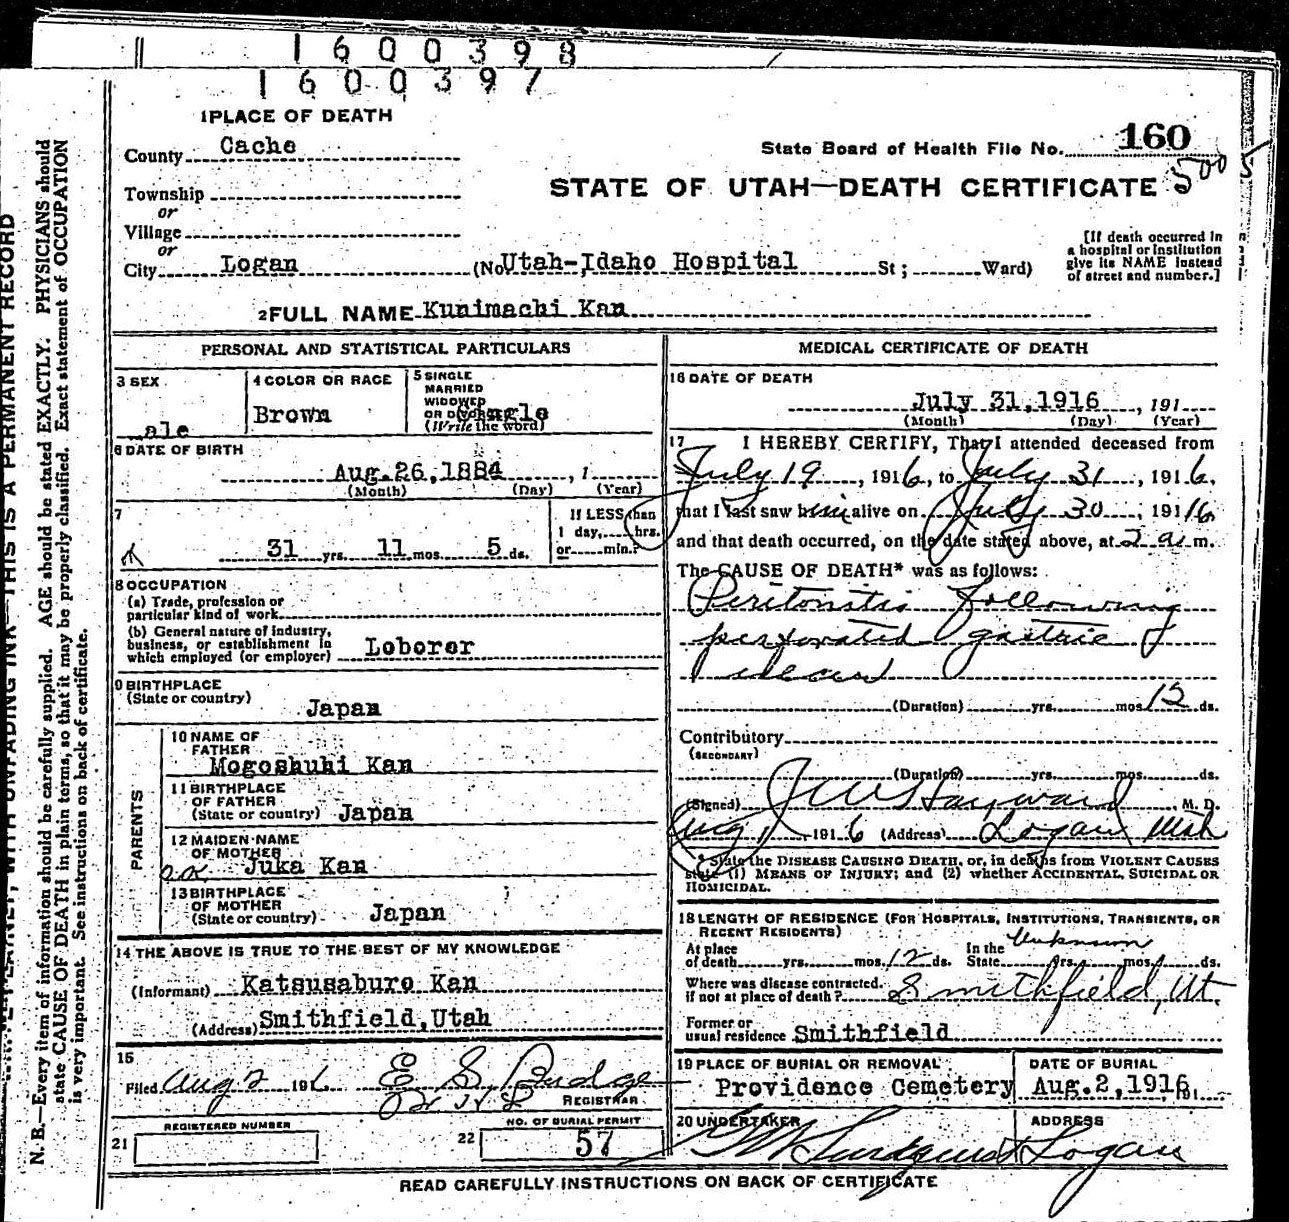 1600398
1600397
1 PLACE OF DEATH
County Cache
State Board of Health File No. 160
Township
or
STATE OF UTAH—DEATH CERTIFICATE 500
Village
or
City Logan (No Utah-Idaho Hospital St; Ward)
[If death occurred in
a hospital or institution
give its NAME instead
of street and number.]
2 FULL NAME Kunimachi Kan
PERSONAL AND STATISTICAL PARTICULARS
3 SEX
ale
4 COLOR OR RACE
Brown
5 SINGLE
MARRIED
WIDOWED
OR DIVORCED
(Write the word)
6 DATE OF BIRTH
Aug. 26, 1884, 1
(Month) (Day) (Year)
7
31 yrs. 11 mos. 5 ds.
If LESS than
1 day, hrs.
or min.?
8 OCCUPATION
(a) Trade, profession or
particular kind of work
(b) General nature of industry,
business, or establishment in
which employed (or employer) Loborer
9 BIRTHPLACE
(State or country)
Japan
PARENTS
10 NAME OF
FATHER
Mogoshuhi Kan
11 BIRTHPLACE
OF FATHER
(State or country) Japan
12 MAIDEN NAME
OF MOTHER
OK Juka Kan
13 BIRTHPLACE
OF MOTHER
(State or country) Japan
14 THE ABOVE IS TRUE TO THE BEST OF MY KNOWLEDGE
(Informant) Katsusaburo Kan
(Address) Smithfield, Utah
15
Filed Aug 2 191 6 E S Budge
REGISTRAR
REGISTERED NUMBER
21
NO. OF BURIAL PERMIT
22 57
MEDICAL CERTIFICATE OF DEATH
16 DATE OF DEATH
July 31, 1916, 191
(Month) (Day) (Year)
17 I HEREBY CERTIFY, That I attended deceased from
July 19, 1916, to July 31, 1916,
that I last saw him alive on July 30, 191 16
and that death occurred, on the date stated above, at 2 a. m.
The CAUSE OF DEATH* was as follows:
Peritonitis following
perforated gastric
ulcer
(Duration) yrs. mos. 12 ds.
Contributory
(SECONDARY)
(Duration) yrs. mos. ds.
(Signed) J W Hayward M. D.
Aug 1 1916 (Address) Logan Utah
* State the DISEASE CAUSING DEATH, or, in deaths from VIOLENT CAUSES
state (1) MEANS OF INJURY; and (2) whether ACCIDENTAL, SUICIDAL OR
HOMICIDAL.
18 LENGTH OF RESIDENCE (FOR HOSPITALS, INSTITUTIONS, TRANSIENTS, OR
RECENT RESIDENTS)
At place
of death yrs. mos. 12 ds. In the State Unknown yrs. mos. ds.
Where was disease contracted.
if not at place of death? Smithfield, Ut.
Former or
usual residence Smithfield
19 PLACE OF BURIAL OR REMOVAL
Providence Cemetery
DATE OF BURIAL
Aug. 2, 1916, 191
20 UNDERTAKER
Lundquist
ADDRESS
Logan
READ CAREFULLY INSTRUCTIONS ON BACK OF CERTIFICATE
N. B.—Every item of information should be carefully supplied. AGE should be stated EXACTLY. PHYSICIANS should
state CAUSE OF DEATH in plain terms, so that it may be properly classified. Exact statement of OCCUPATION
is very important. See instructions on back of certificate.
WITH UNFADING INK—THIS IS A PERMANENT RECORD